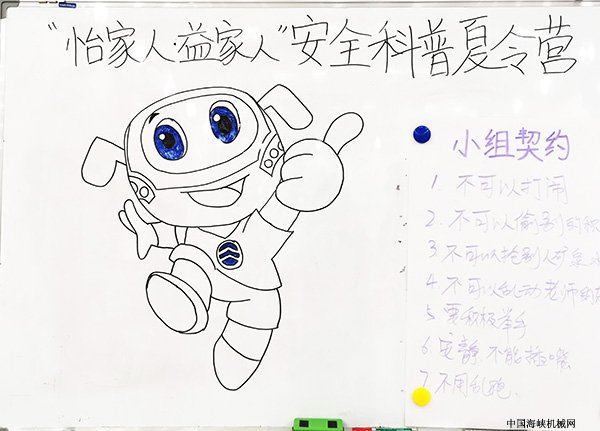 “怡家人·益家人”安全科普夏令营
小组契约
1. 不可以打闹
2. 不可以偷别的积
3 不可以抢别人矿泉水
4 不可以乱动老师的
5 要积极举手
6 安静 不能插嘴
7 不用乱跑.
中国海峡机械网